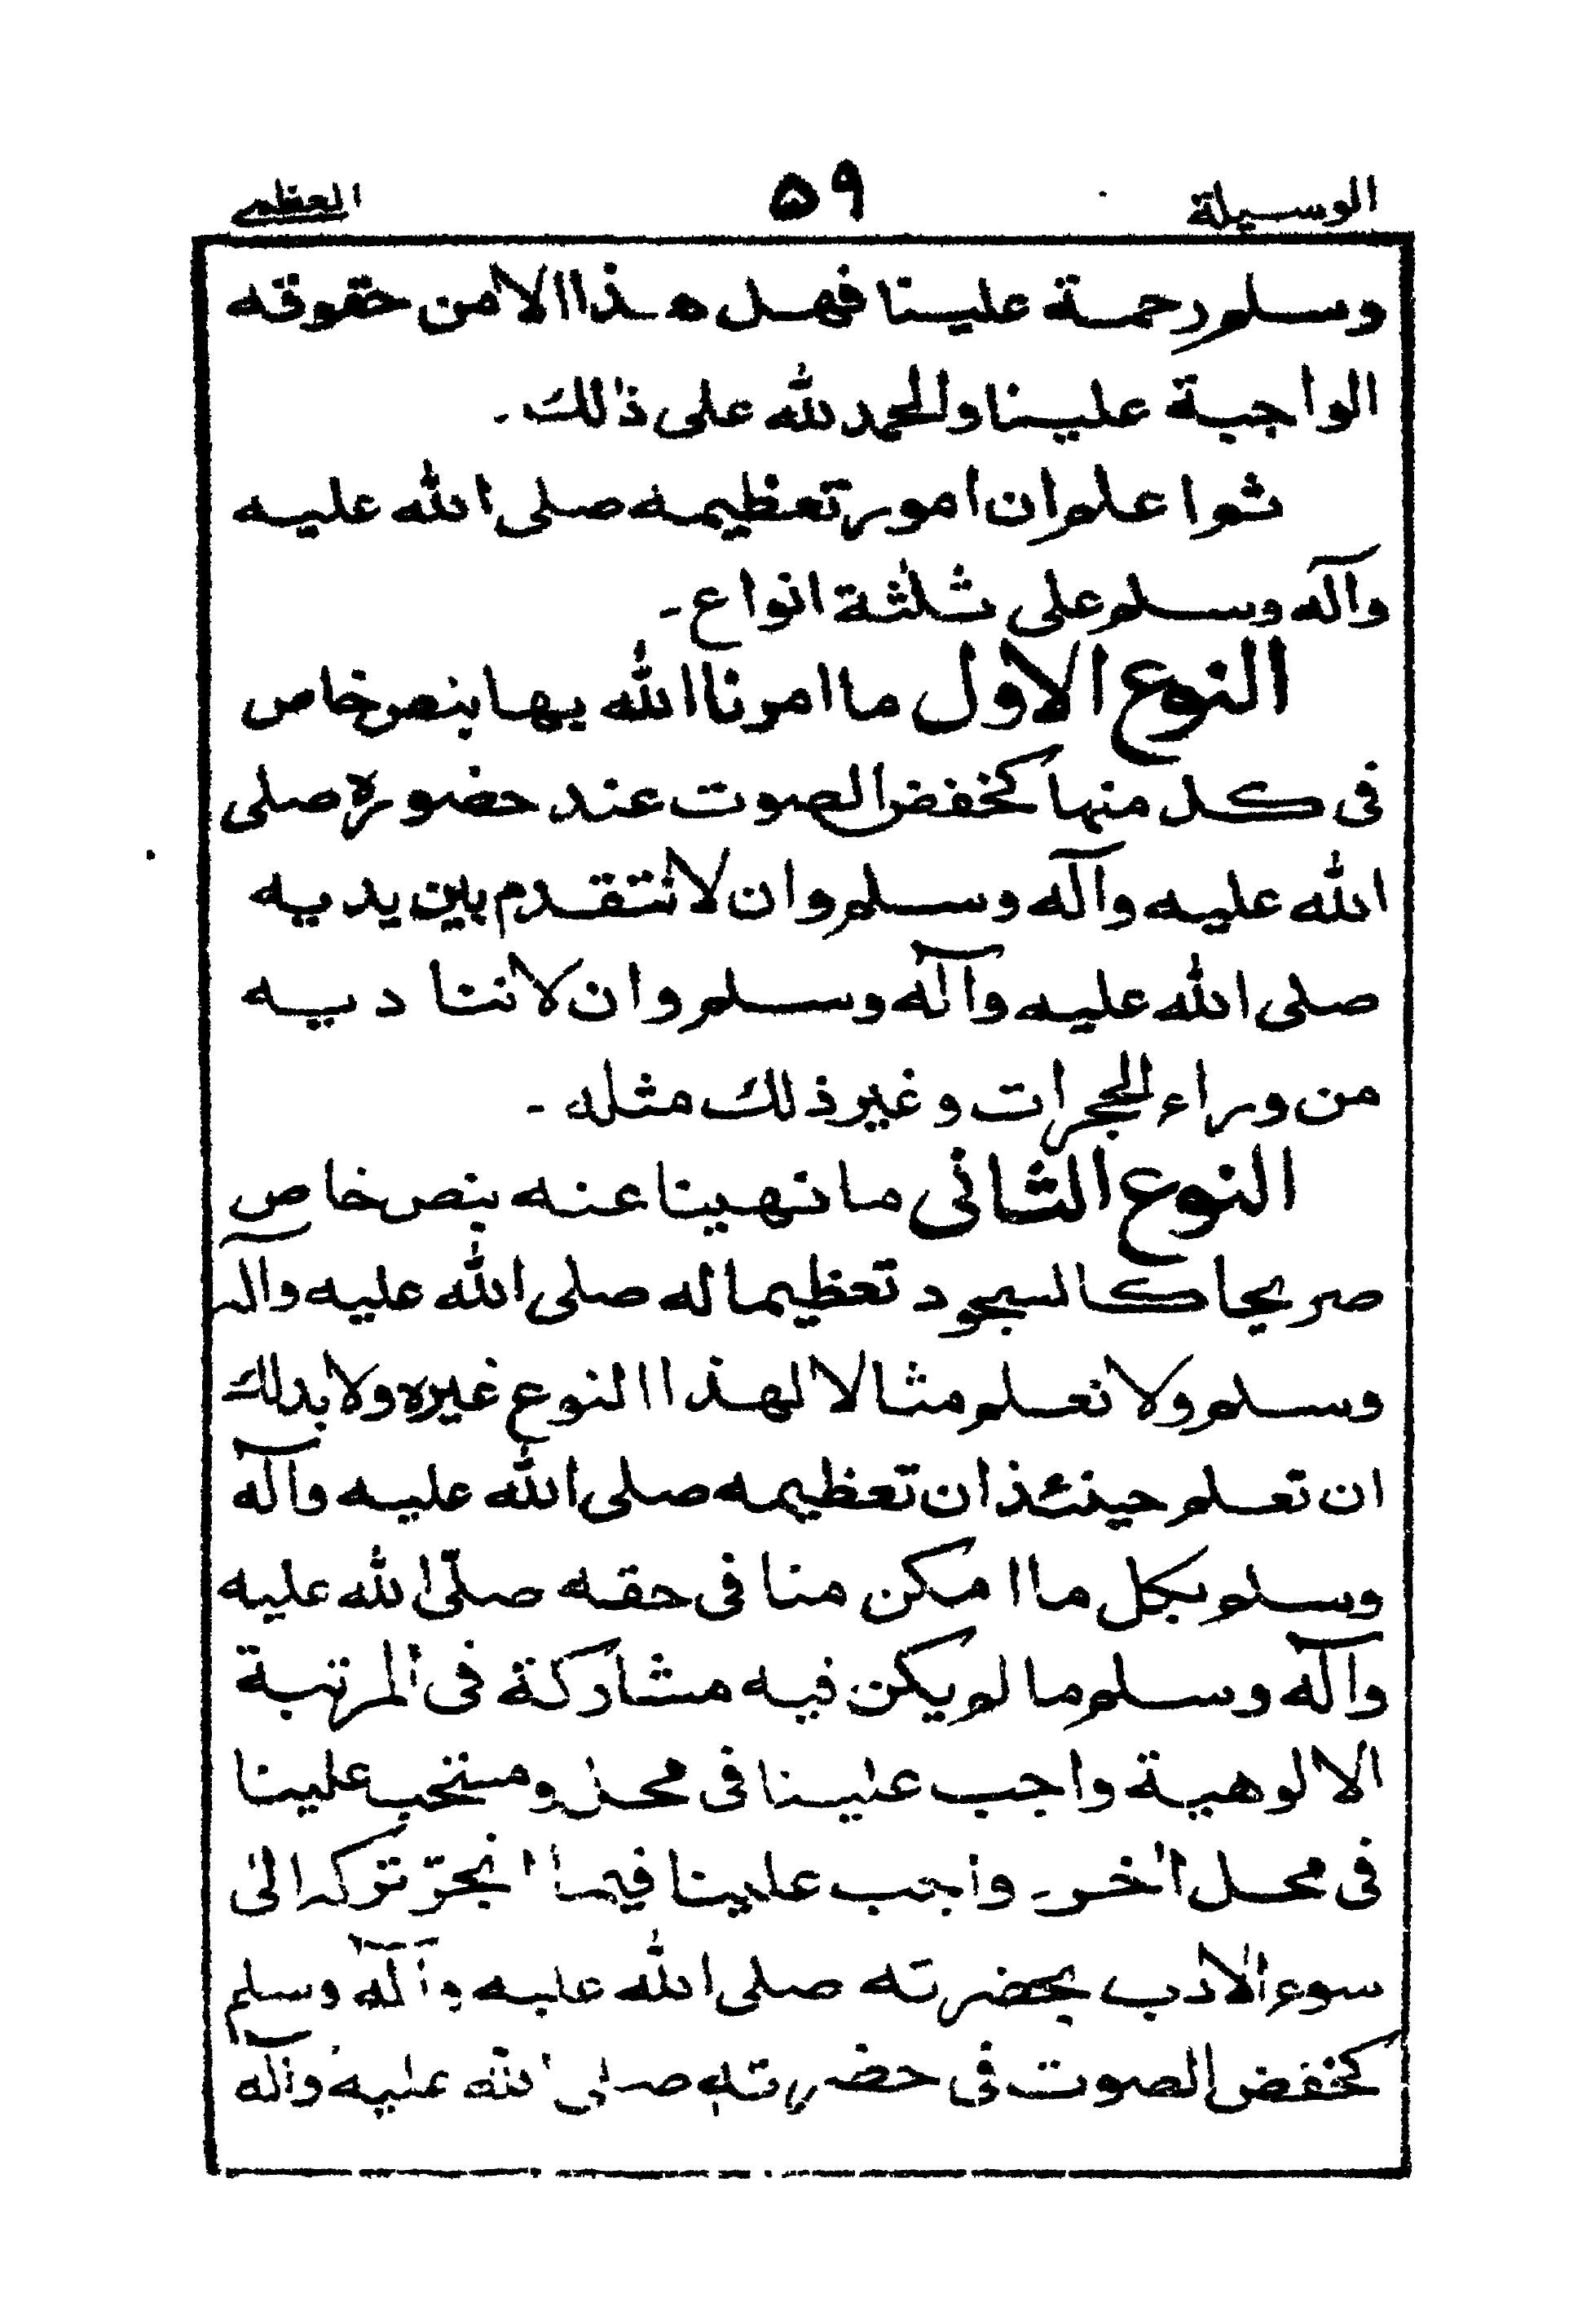 الوسيلة ٥٩ العظمى
وسلم رحمة علينا فهل هذا الا من حقوقه
الواجبة علينا والحمد لله على ذالك۔
ثم اعلم ان امور تعظيمه صلى الله عليه
وآله وسلم على ثلثة انواع۔
النوع الاول ما امرنا الله بها بنص خاص
فى كل منها كخفض الصوت عند حضوره صلى
الله عليه وآله وسلم وان لا نتقدم بين يديه
صلى الله عليه وآله وسلم وان لا ننا ديه
من وراء الحجرات وغير ذلك مثله۔
النوع الثانى ما نهينا عنه بنص خاص
صريحا كالسجود تعظيما له صلى الله عليه وآله
وسلم ولا نعلم مثالا لهذا النوع غيره ولا بدلك
ان تعلم حينئذ ان تعظيمه صلى الله عليه وآله
وسلم بكل ما امكن منا فى حقه صلّى الله عليه
وآله وسلم ما لم يكن فيه مشاركة فى المرتبة
الالوهية واجب علينا فى محل ومستحب علينا
فى محل اخر۔ واجب علينا فيما انجرّ تركه الى
سوء الادب بحضرته صلى الله عليه وآله وسلم
كخفض الصوت فى حضرته صلى الله عليه وآله